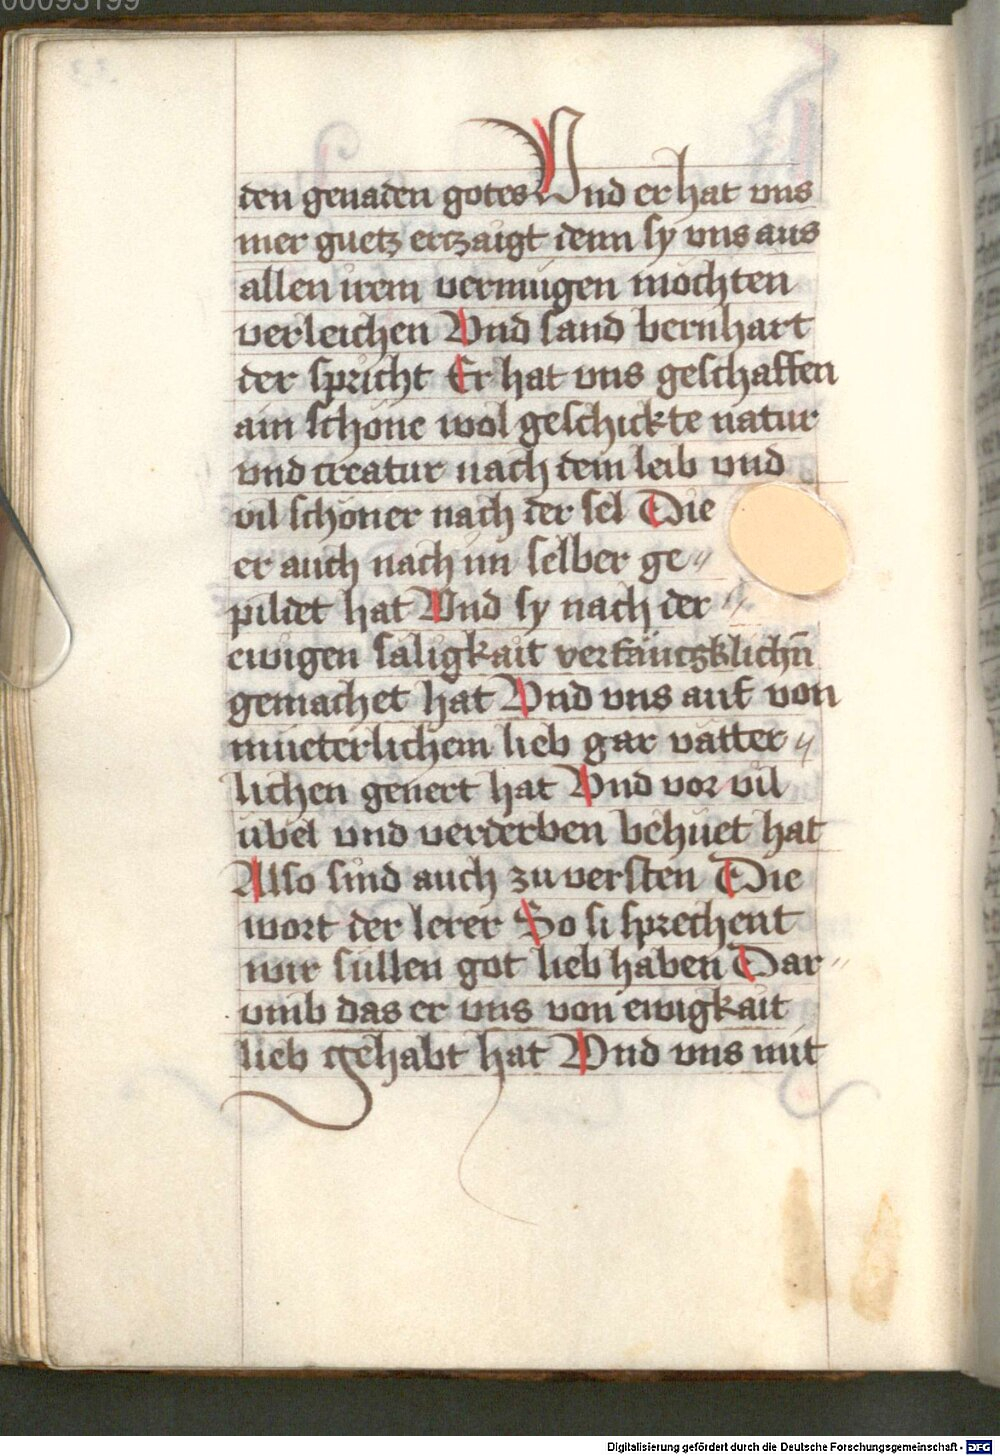 00093199
den genaden gotes Vnd er hat vns
mer guetz erczaigt denn sy vns aus
allen irem vermugen mochten
verleichen Vnd sand bernhart
der spricht Er hat vns geschaffen
ain schöne wol geschickte natur
vnd creatur nach dem leib vnd
vil schöner nach der sel Die
er auch nach im selber ge
pildet hat Vnd sy nach der
ewigen säligkait
gemachet hat Vnd vns auf von
mueterlichem lieb gar vätter
lichen genert hat Vnd vor vil
übel vnd verderben behuet hat
Also sind auch zu versten Die
wort der lerer So si sprechent
wir sullen got lieb haben Dar
vmb das er vns von ewigkait
lieb gehabt hat Vnd vns mit
Digitalisierung gefördert durch die Deutsche Forschungsgemeinschaft - DFG